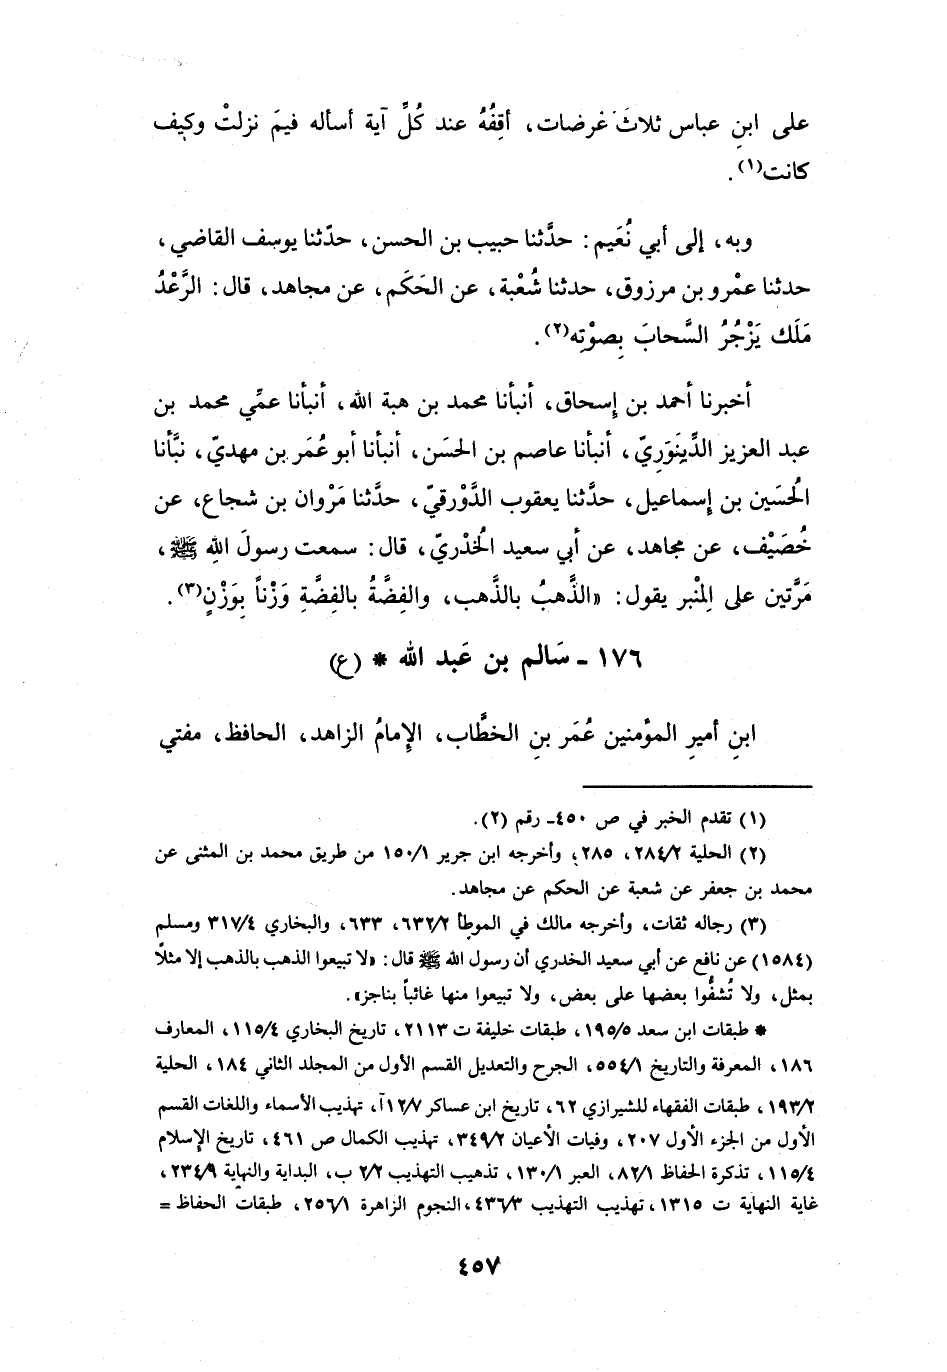 على ابنِ عباس ثلاثَ عَرضات، أقِفُهُ عند كُلِّ آية أسأله فيمَ نزلتْ وكيف
كانت(١).
وبه، إلى أبي نُعَيم: حدَّثنا حبيب بن الحسن، حدّثنا يوسف القاضي،
حدثنا عمْرو بن مرزوق، حدثنا شُعْبة، عن الحَكَم، عن مجاهد، قال: الرَّعْدُ
مَلَك يَزْجُرُ السَّحابَ بِصوْتِه(٢).
أخبرنا أحمد بن إسحاق، أنبأنا محمد بن هبة الله، أنبأنا عمِّي محمد بن
عبد العزيز الدِّينَوَرِيّ، أنبأنا عاصم بن الحَسَن، أنبأنا أبو عُمَر بن مهديّ، نبَّأنا
الحُسَين بن إسماعيل، حدَّثنا يعقوب الدَّوْرقيّ، حدَّثنا مَرْوان بن شجاع، عن
خُصَيْف، عن مجاهد، عن أبي سعيد الخُدْريّ، قال: سمعت رسولَ اللهِ ﷺ،
مَرَّتين على المِنْبر يقول: «الذَّهبُ بالذَّهب، والفِضَّةُ بالفِضَّةِ وَزْناً بوَزْنٍ(٣).
١٧٦ - سَالم بن عَبد الله * (ع)
ابنِ أميرِ المؤمنين عُمَر بنِ الخطَّاب، الإمامُ الزاهد، الحافظ، مفتي
(١) تقدم الخبر في ص ٤٥٠- رقم (٢).
(٢) الحلية ٢٨٤/٢، ٢٨٥، وأخرجه ابن جرير ١٥٠/١ من طريق محمد بن المثنى عن
محمد بن جعفر عن شعبة عن الحكم عن مجاهد.
(٣) رجاله ثقات، وأخرجه مالك في الموطأ ٦٣٢/٢، ٦٣٣، والبخاري ٣١٧/٤ ومسلم
(١٥٨٤) عن نافع عن أبي سعيد الخدري أن رسول الله ﷺ قال: «لا تبيعوا الذهب بالذهب إلا مثلاً
بمثل، ولا تُشفُّوا بعضها على بعض، ولا تبيعوا منها غائباً بناجز».
* طبقات ابن سعد ١٩٥/٥، طبقات خليفة ت ٢١١٣، تاريخ البخاري ١١٥/٤، المعارف
١٨٦، المعرفة والتاريخ ٥٥٤/١، الجرح والتعديل القسم الأول من المجلد الثاني ١٨٤، الحلية
١٩٣/٢، طبقات الفقهاء للشيرازي ٦٢، تاريخ ابن عساكر ١٢/٧ آ، تهذيب الأسماء واللغات القسم
الأول من الجزء الأول ٢٠٧، وفيات الأعيان ٣٤٩/٢، تهذيب الكمال ص ٤٦١، تاريخ الإسلام
١١٥/٤، تذكرة الحفاظ ٨٢/١، العبر ١٣٠/١، تذهيب التهذيب ٢/٢ ب، البداية والنهاية ٢٣٤/٩،
غاية النهاية ت ١٣١٥، تهذيب التهذيب ٤٣٦/٣، النجوم الزاهرة ٢٥٦/١، طبقات الحفاظ =
٤٥٧